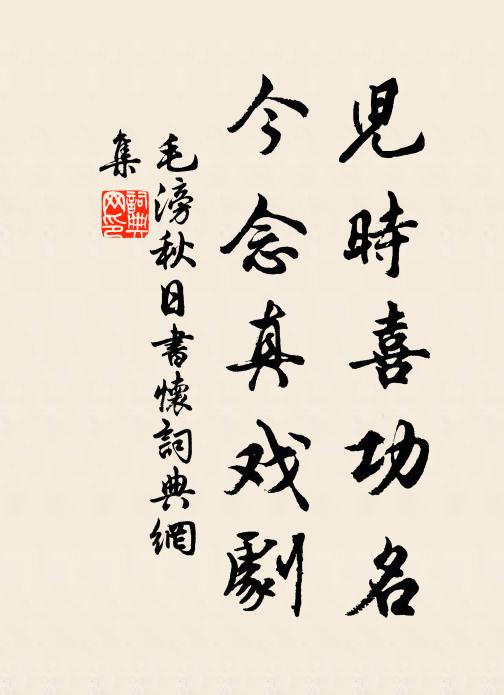 兒時喜功名
今念真戏劇
毛滂秋日書懷詞典網
集
詞典
网印